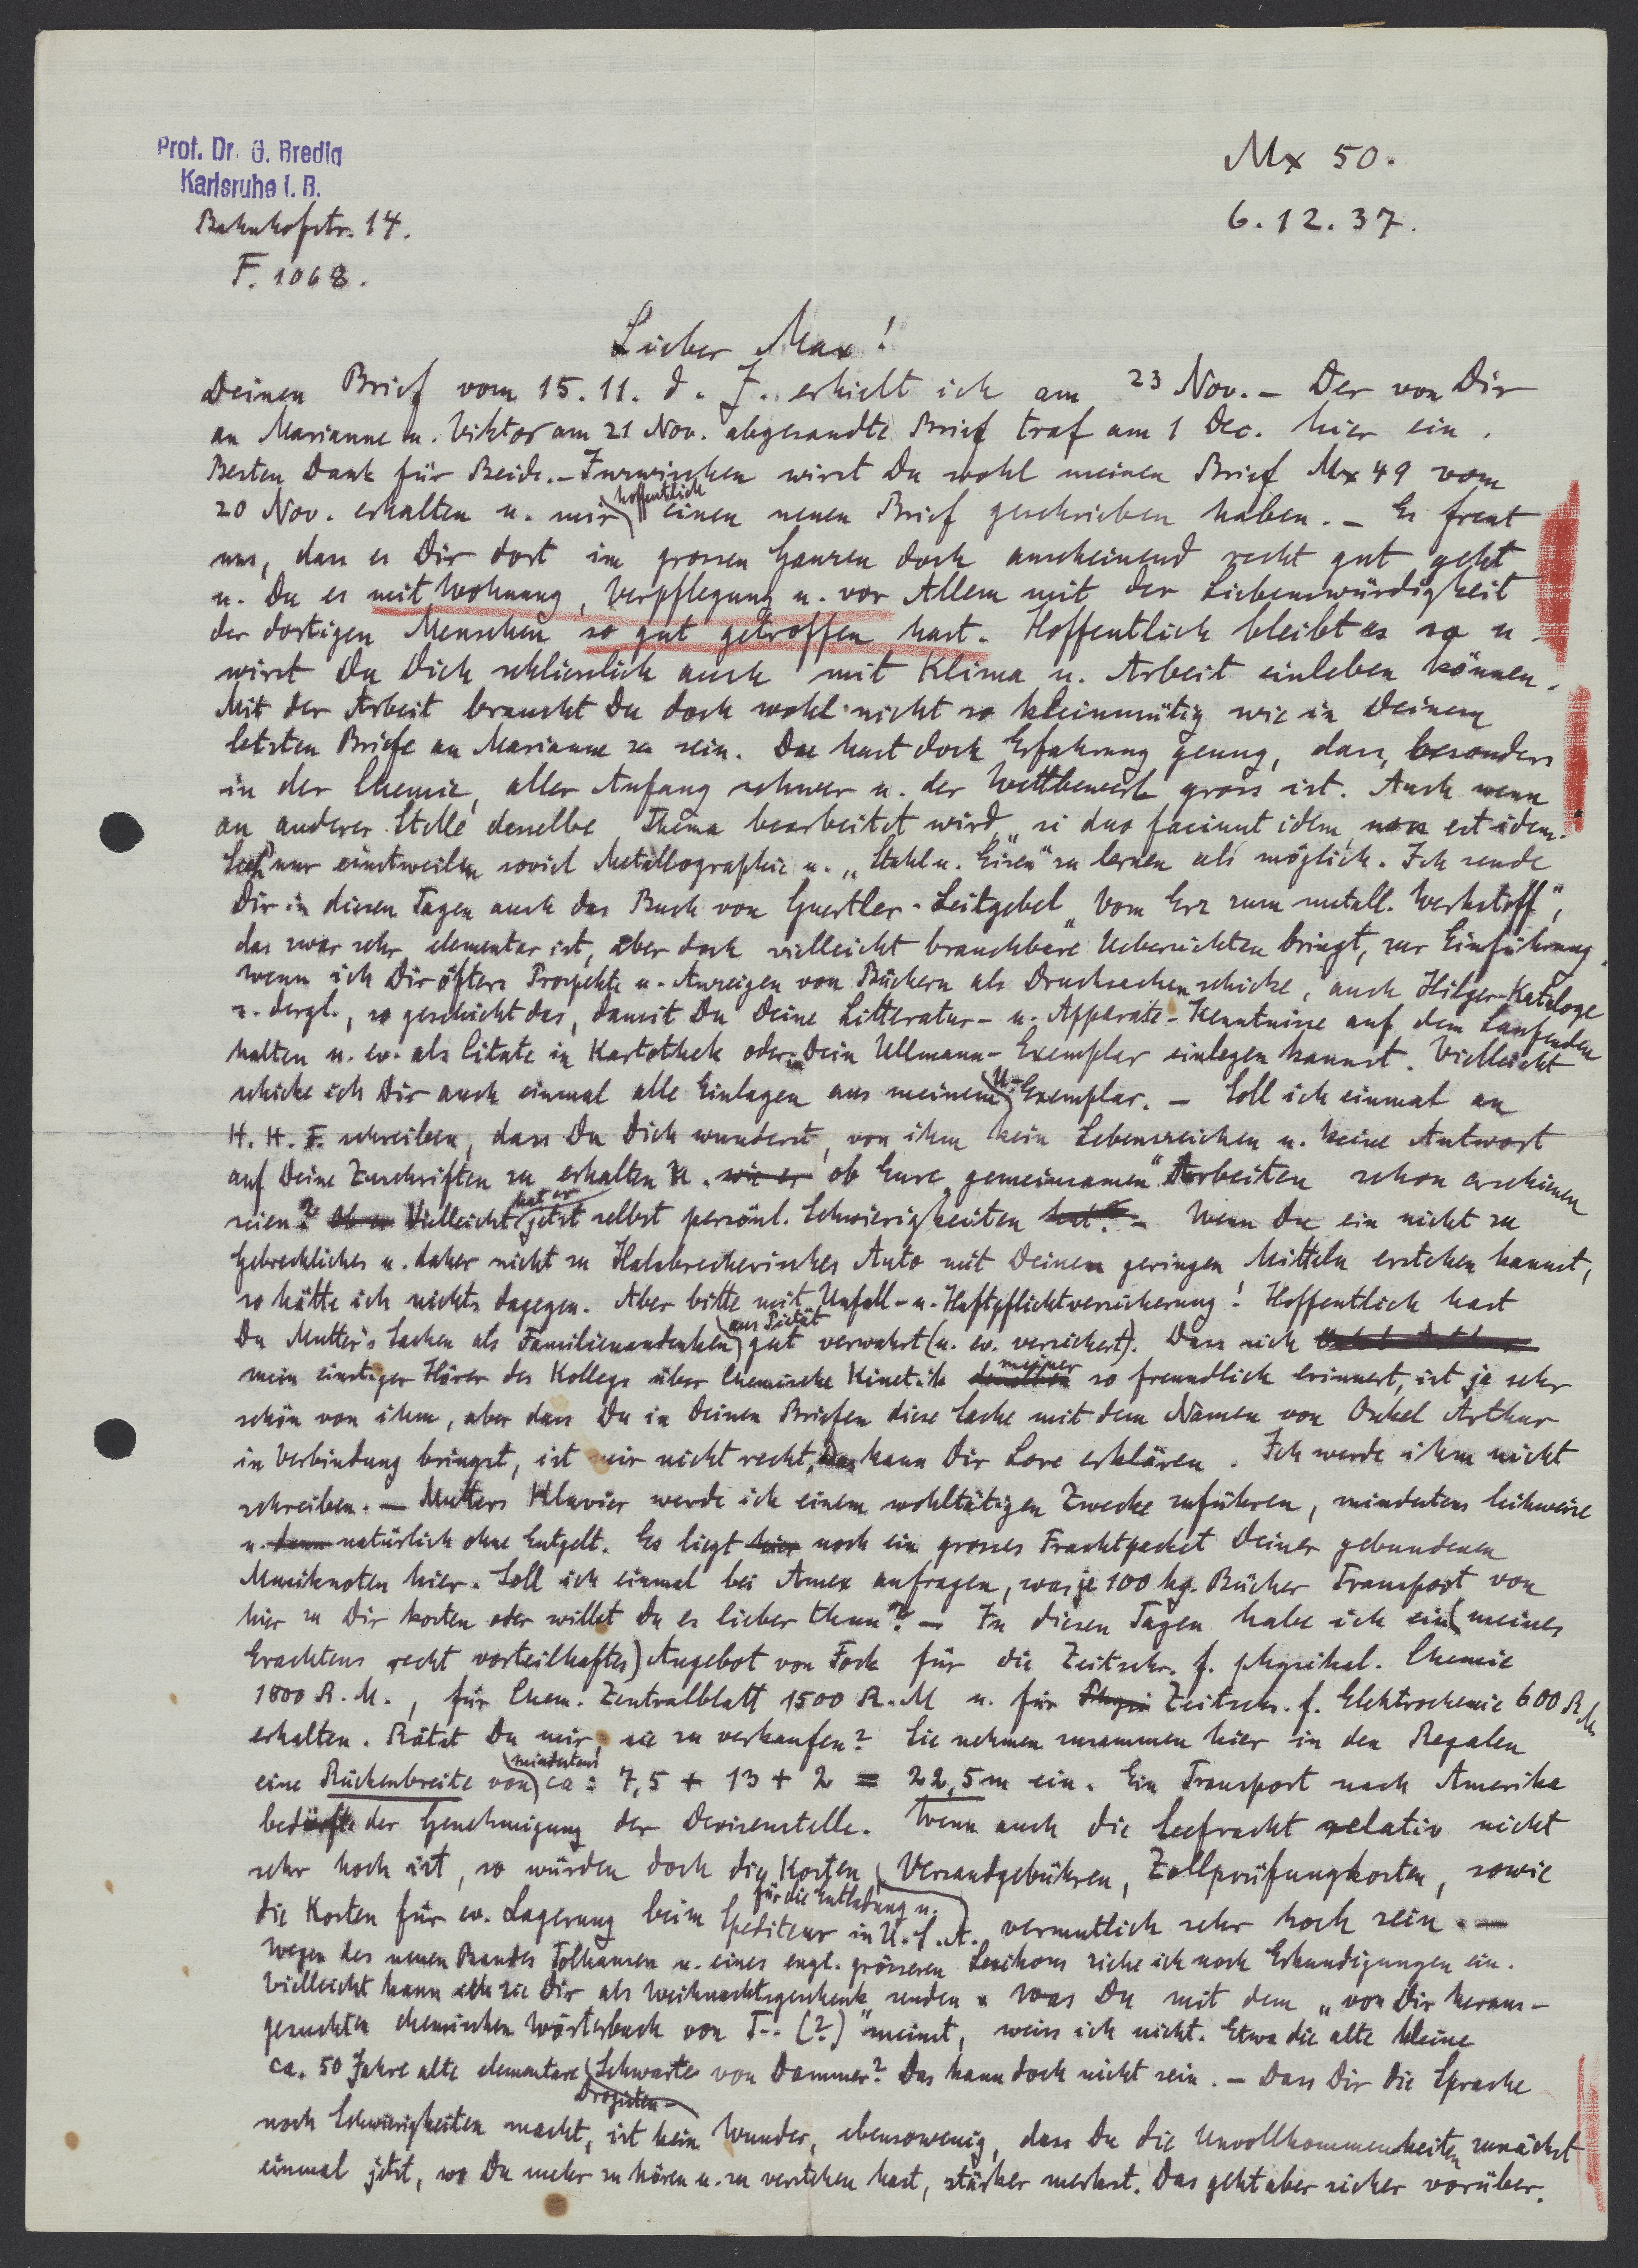 Prof. Dr. G. Bredig
Karlsruhe i. B.
Bahnhofstr. 14.
F. 1068.
Mx 50.
6.12.37.
Lieber Max!
Deinen Brief vom 15.11. d. J. erhielt ich am 23 Nov. – Der von Dir
an Marianne u. Viktor am 21 Nov. abgesandte Brief traf am 1 Dec. hier ein.
Besten Dank für Beide. – Inzwischen wirst Du wohl meinen Brief Mx 49 vom
20 Nov. erhalten u. mir hoffentlich einen neuen Brief geschrieben haben. – Es freut
uns, dass es Dir dort im grossen Ganzen doch anscheinend recht gut geht
u. Du es mit Wohnung, Verpflegung u. vor Allem mit der Liebenswürdigkeit
der dortigen Menschen so gut getroffen hast. Hoffentlich bleibt es so u.
wirst Du Dich schliesslich auch mit Klima u. Arbeit einleben können.
Mit der Arbeit brauchst Du doch wohl nicht so kleinmütig wie in Deinem
letzten Briefe an Marianne zu sein. Du hast doch Erfahrung genug, dass, besonders
in der Chemie, aller Anfang schwer u. der Wettbewerb gross ist. Auch wenn
an anderer Stelle dasselbe Thema bearbeitet wird, „si duo faciunt idem, non est idem."
nur einstweilen soviel Metallographie u. „Stahl u. Eisen" zu lernen als möglich. Ich sende
Dir in diesen Tagen auch das Buch von Guertler-Leitgebel „Vom Erz zum metall. Werkstoff",
das zwar sehr elementar ist, aber doch vielleicht brauchbare Uebersichten bringt, zur Einführung.
Wenn ich Dir öfters Prospekte u. Anzeigen von Büchern als Drucksachen schicke, auch Hilger-Kataloge
u. dergl., so geschieht das, damit Du Deine Litteratur- u. Apparate-Kenntnisse auf dem Laufenden
halten u. ev. als Citate in Kartothek oder in Dein Ullmann-Exemplar einlegen kannst. Vielleicht
schicke ich Dir auch einmal alle Einlagen aus meinem U-Exemplar. – Soll ich einmal an
H. H. F. schreiben, dass Du Dich wunderst, von ihm kein Lebenszeichen u. keine Antwort
auf Deine Zuschriften zu erhalten u. wie er ob Eure „gemeinsamen" Arbeiten schon erschienen
seien? Ob er Vielleicht hat er jetzt selbst persönl. Schwierigkeiten hat? – Wenn Du ein nicht zu
Gebrechliches u. daher nicht zu Halsbrecherisches Auto mit Deinen geringen Mitteln erstehen kannst,
so hätte ich nichts dagegen. Aber bitte mit Unfall- u. Haftpflichtversicherung! Hoffentlich hast
Du Mutter's Sachen als Familienandenken aus Pietät gut verwahrt (u. ev. versichert). Dass sich
mein einstiger Hörer des Kollegs über Chemische Kinetik meiner so freundlich erinnert, ist ja sehr
schön von ihm, aber dass Du in Deinen Briefen diese Sache mit dem Namen von Onkel Arthur
in Verbindung bringst, ist mir nicht recht. Das kann Dir Lore erklären. Ich werde ihm nicht
schreiben. – Mutters Klavier werde ich einem wohltätigen Zwecke zuführen, mindestens leihweise
u. dann natürlich ohne Entgelt. Es liegt hier noch ein grosses Frachtpacket Deiner gebundenen
Musiknoten hier. Soll ich einmal bei Amex anfragen, was je 100 kg. Bücher Transport von
hier zu Dir kosten oder willst Du es lieber thun? – In diesen Tagen habe ich ein (meines
Erachtens recht vorteilhaftes) Angebot von Fock für die Zeitschr. f. physikal. Chemie
1800 R.M., für Chem. Zentralblatt 1500 R.M u. für Physi Zeitschr. f. Elektrochemie 600 RM
erhalten. Rätst Du mir, sie zu verkaufen? Sie nehmen zusammen hier in den Regalen
eine Rückenbreite von mindestens ca: 7,5 + 13 + 2 = 22,5 m ein. Ein Transport nach Amerika
bedürfte der Genehmigung der Devisenstelle. Wenn auch die Seefracht relativ nicht
sehr hoch ist, so würden doch die Kosten Versandgebühren, Zollprüfungkosten, sowie
die Kosten für ev. Lagerung beim für die Entladung u. Spediteur in U.S.A. vermutlich sehr hoch sein. –
Wegen des neuen Bandes Tolhausen u. eines engl. grösseren Lexikons ziehe ich noch Erkundigungen ein.
Vielleicht kann ich sie Dir als Weihnachtsgeschenk senden. Was Du mit dem „von Dir heraus-
gesuchten chemischen Wörterbuch von T-- (?)" meinst, weiss ich nicht. Etwa die alte kleine
ca. 50 Jahre alte elementare Drogisten-Schwarte von Dammer? Das kann doch nicht sein. – Dass Dir die Sprache
noch Schwierigkeiten macht, ist kein Wunder, ebensowenig, dass Du die Unvollkommenheiten zunächst
einmal jetzt, wo Du mehr zu hören u. zu verstehen hast, stärker merkst. Das geht aber sicher vorüber.